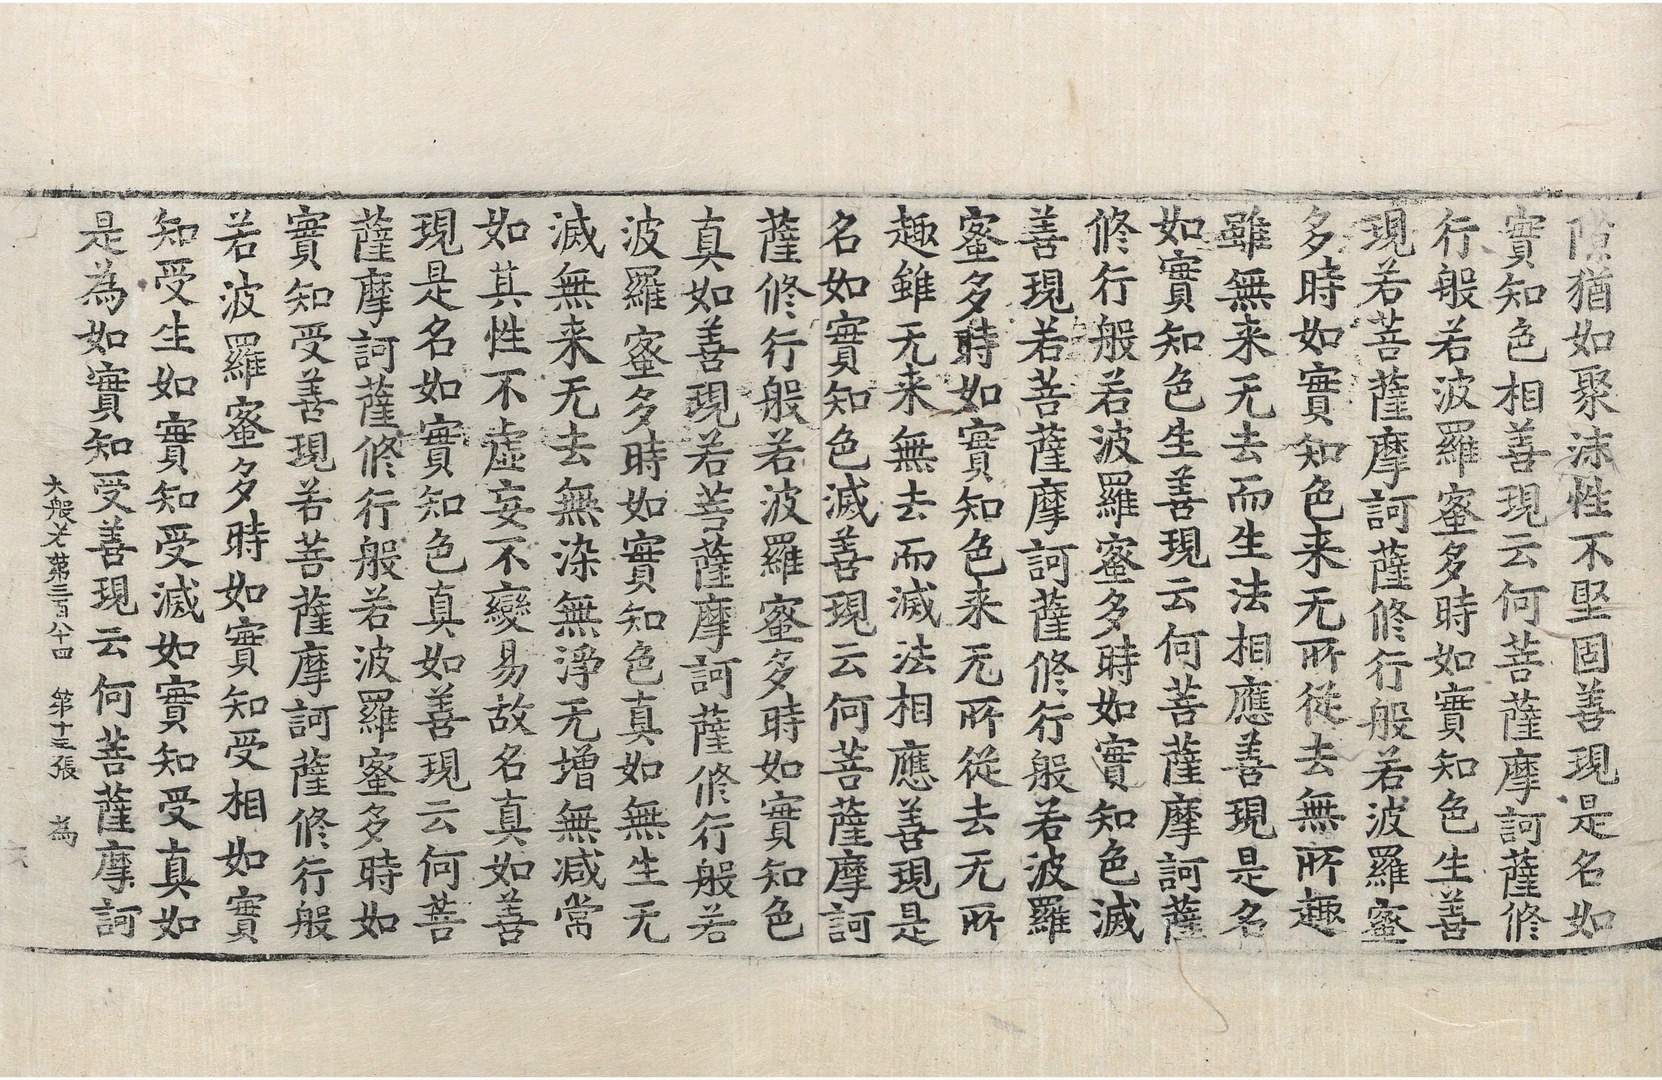 隙猶如聚沫性不堅固善現是名如
實知色相善現云何菩薩摩訶薩修
行般若波羅蜜多時如實知色生善
現若菩薩摩訶薩修行般若波羅蜜
多時如實知色来无所從去無所趣
雖無来无去而生法相應善現是名
如實知色生善現云何菩薩摩訶薩
修行般若波羅蜜多時如實知色滅
善現若菩薩摩訶薩修行般若波羅
蜜多時如實知色来无所從去无所
趣雖无来無去而滅法相應善現是
名如實知色滅善現云何菩薩摩訶
薩修行般若波羅蜜多時如實知色
真如善現若菩薩摩訶薩修行般若
波羅蜜多時如實知色真如無生无
滅無来无去無染無淨无增無減常
如其性不虛妄不變易故名真如善
現是名如實知色真如善現云何菩
薩摩訶薩修行般若波羅蜜多時如
實知受善現若菩薩摩訶薩修行般
若波羅蜜多時如實知受相如實
知受生如實知受滅如實知受真如
是為如實知受善現云何菩薩摩訶
大般若第三百八十四 第十三張 為